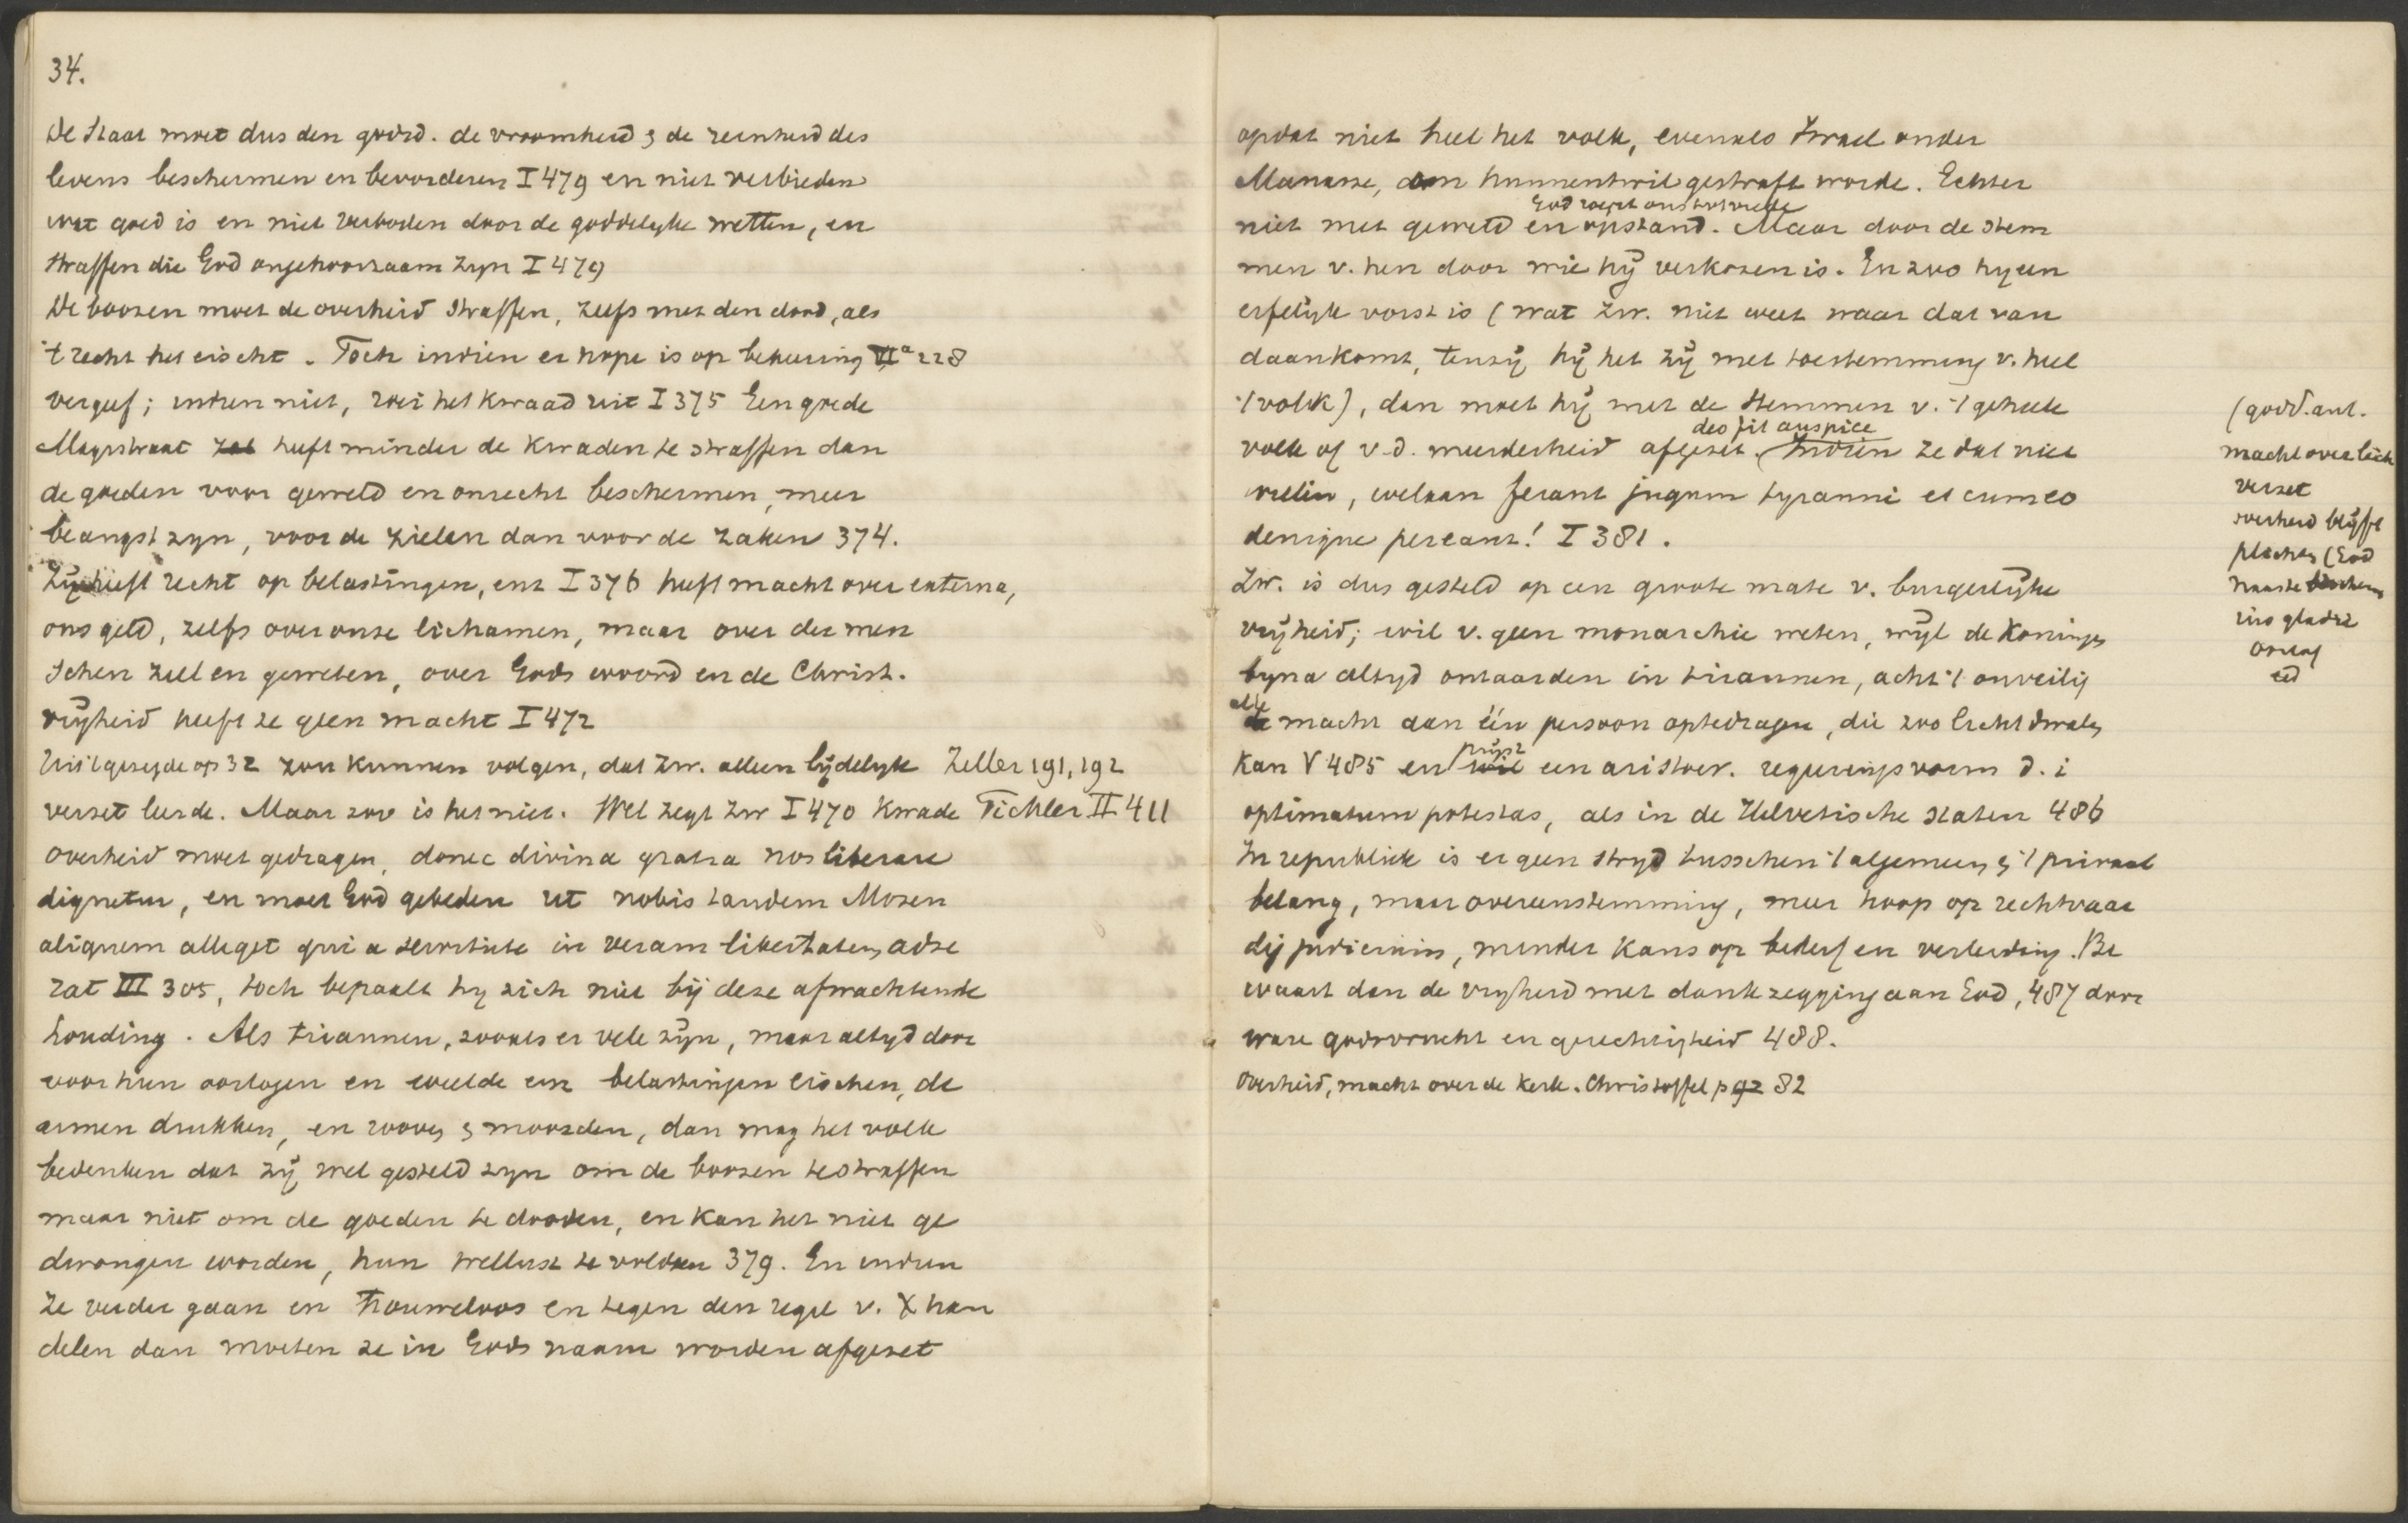 34.
De Staat moet dus den godsd. de vroomheid & de reinheid des
levens beschermen en bevorderen I 479 en niet verbieden
wat goed is en niet verboden door de goddelyke wetten, en
straffen die God ongehoorzaam zyn I 479
De boozen moet de overheid straffen, zelfs met den dood, als
't recht het eischt. Toch indien er hope is op bekeering VIa 228
vergeef; indien niet, roei het kwaad uit I 375 Een goede
Magistraat heeft minder de kwaden te straffen dan
de goeden voor geweld en onrecht beschermen, meer
beangst zyn, voor de zielen dan voor de zaken 374.
Zij heeft recht op belastingen, enz I 376 heeft macht over externa,
ons geld, zelfs over onze lichamen, maar over der men
schen ziel en geweten, over Gods woord en de Christ.
vrijheid heeft ze geen macht I 472
Uit 't gezegde op 32 zou kunnen volgen, dat Zw. alleen lijdelyk Zeller 191, 192
verzet leerde. Maar zoo is het niet. Wel zegt Zw I 470 kwade Tichler II 411
overheid moet gedragen, donec divina gratia nos liberare
dignetur, en moet God gebeden ut nobis tandem Mosen
aliquem alleget qui a servitute in veram libertatem adse
rat III 305, toch bepaalt hy zich niet bij deze afwachtende
houding. Als tirannen, zooals er vele zijn, maar altyd door
voor hun oorlogen en weelde en belastingen eischen, de
armen drukken, en roovey & moorden, dan mag het volk
bedenken dat zij wel gesteld zyn om de boozen te straffen
maar niet om de goeden te dooden, en kan het niet ge
dwongen worden, hun wellust te voldoen 379. En indien
ze verder gaan en trouweloos en tegen den regel v. X han
delen dan moeten ze in Gods naam worden afgezet
opdat niet heel het volk, evenals Israel onder
Manasse, om hunnentwil gestraft worde. Echter
God roept ons tot vrede
niet met geweld en opstand. Maar door de stem
men v. hen door wie hij verkozen is. En zoo hy een
erfelijk vorst is (wat Zw. niet weet waar dat van
daan komt, tenzij hij het zij met toestemming v. heel
't volk), dan moet hij met de stemmen v. 't geheele
deo fit auspice
volk of v.d. meerderheid afgezet. Indien ze dat niet
willen, welaan ferant jugum tyranni et cum eo
denique pereant! I 381.
Zw. is dus gesteld op een groote mate v. burgerlijke
vrijheid; wil v. geen monarchie weten, wijl de Koningen
byna altyd ontaarden in tirannen, acht 't onveilig
alle
de macht aan één persoon optedragen, die zoo licht dwalen
prijst
kan V 485 en wil een aristocr. regeeringsvorm d.i
optimatum potestas, als in de Helvetische staten 486
In republiek is er geen stryd tusschen 't algemeen & 't privaat
belang, maar overeenstemming, meer hoop op rechtvaar
dig judicium, minder kans op bederf en verleiding. Be
waart dan de vryheid met dankzegging aan God, 487 door
ware godsvrucht en gerechtigheid 488.
Overheid, macht over de kerk. Christoffel p 92 82
(godd. aut.
macht over lich
verzet
overheid blijft
plichten (God
naaste
oorlog
eed